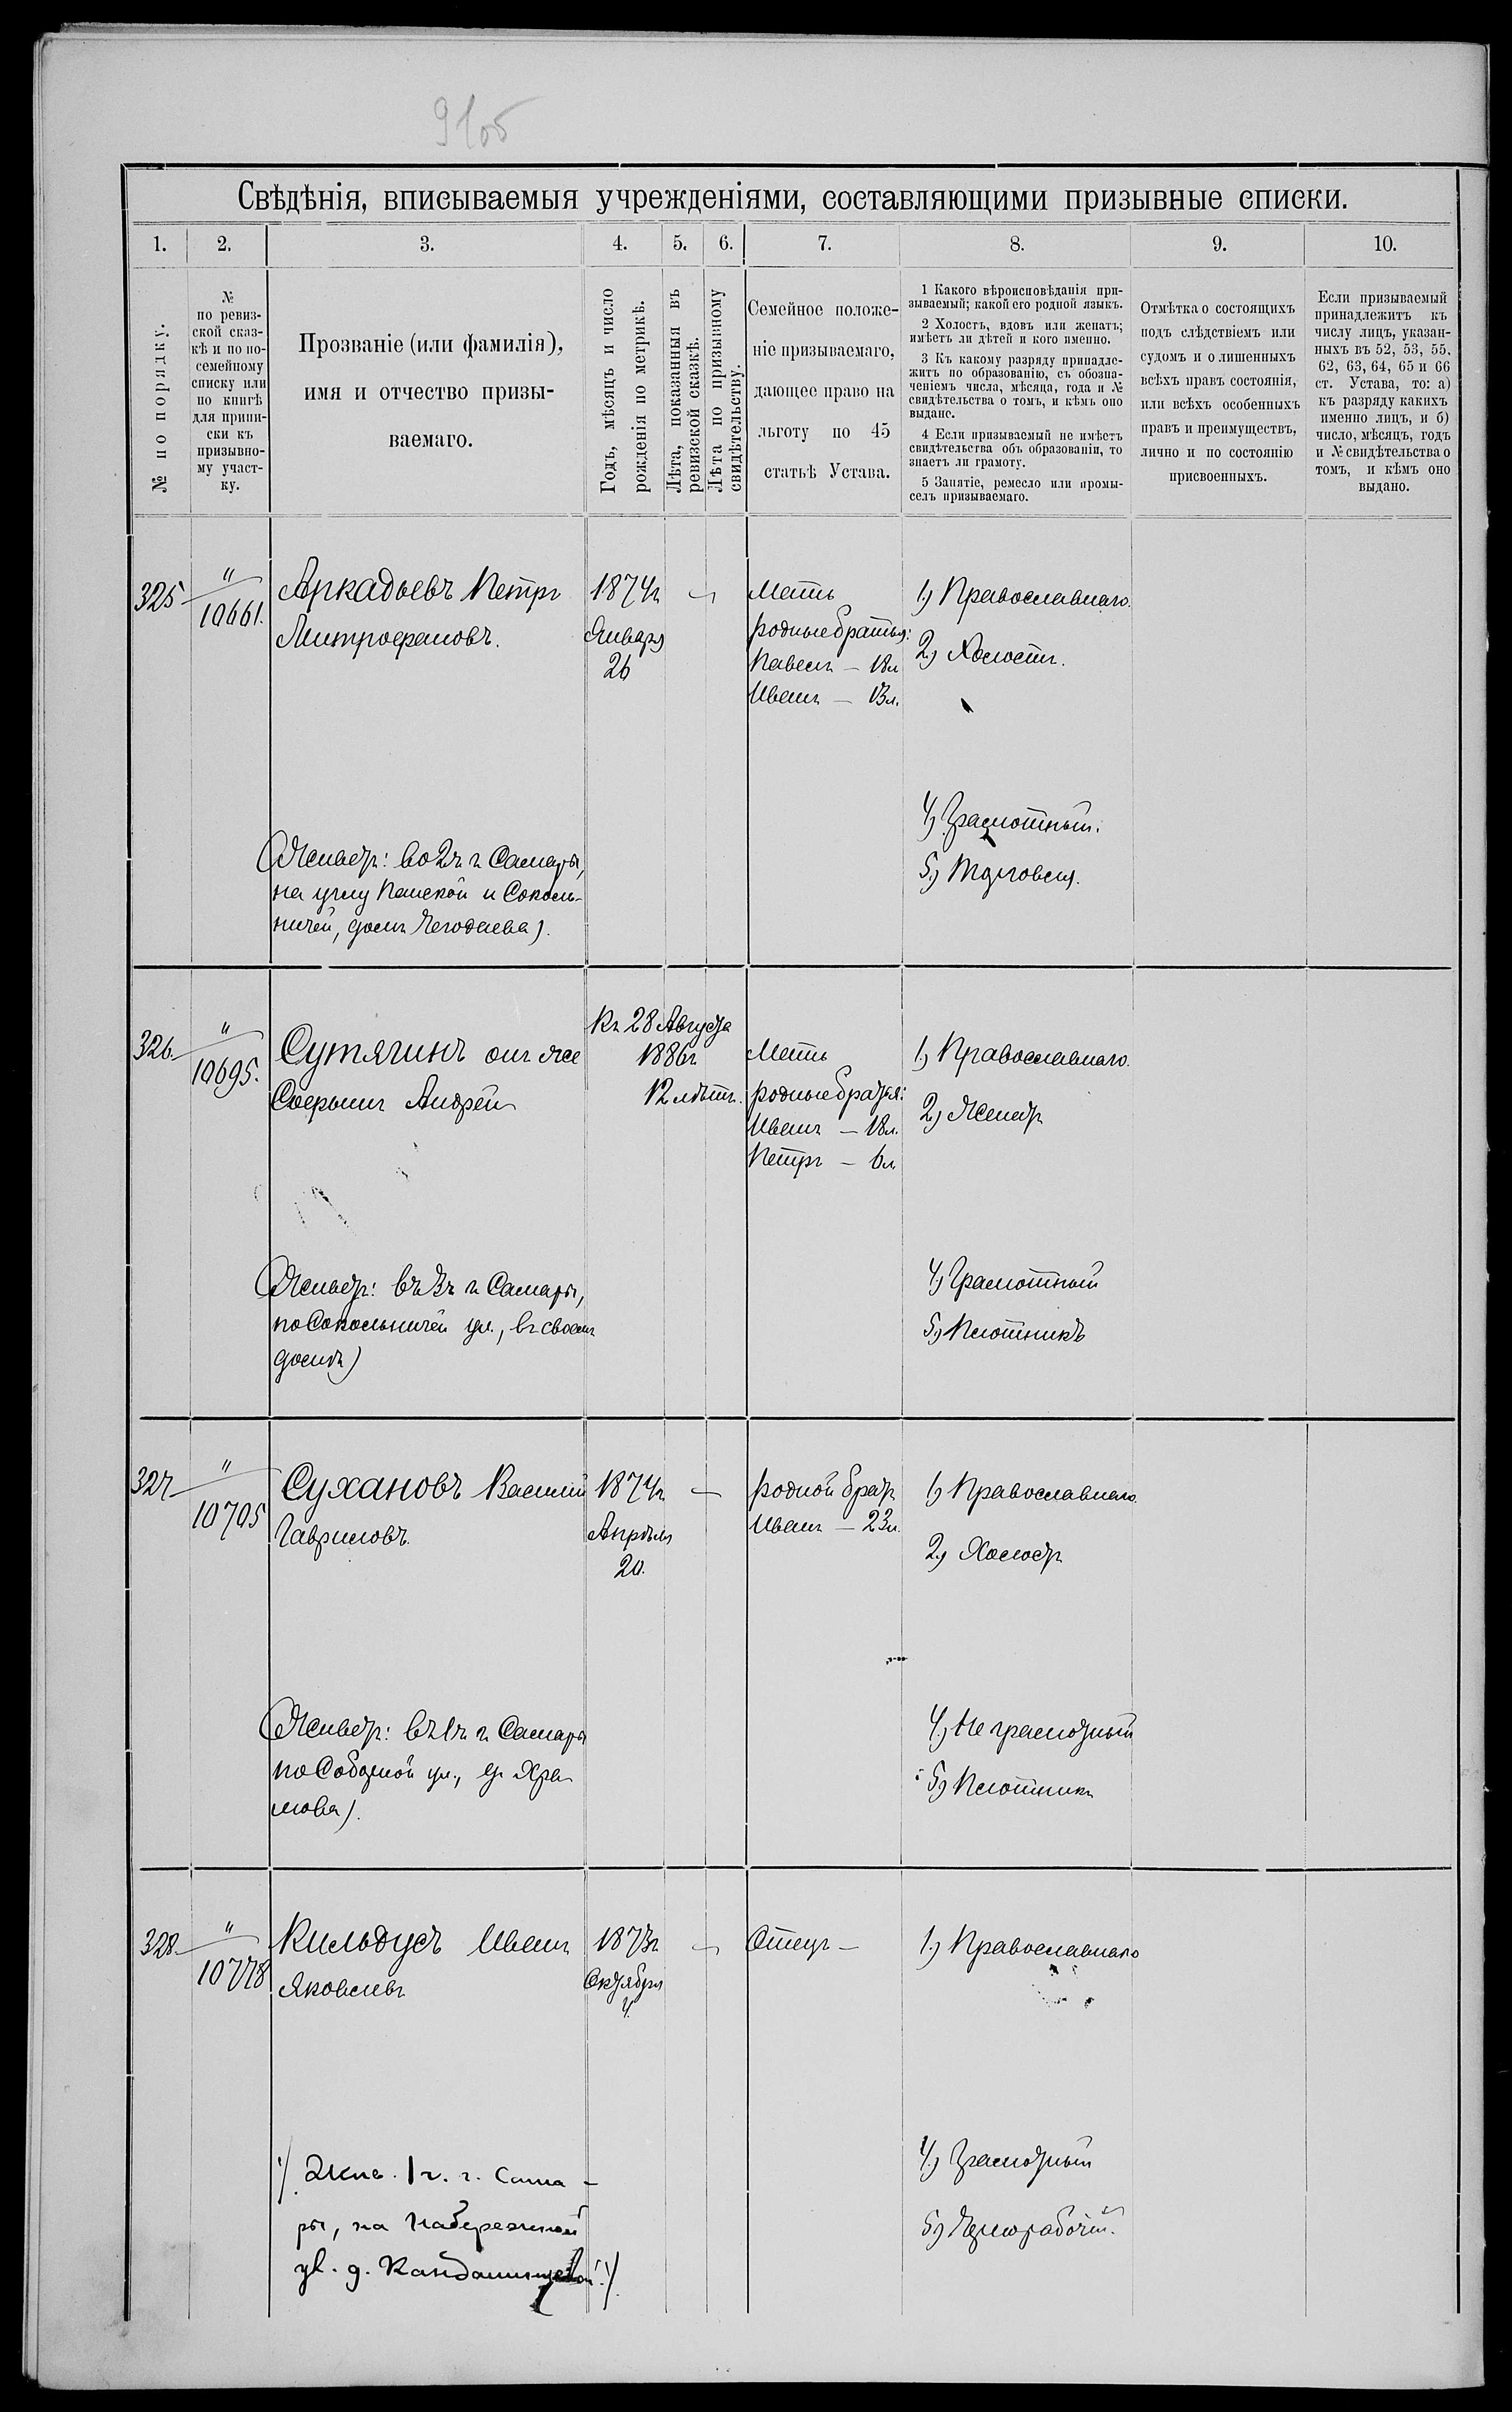 91об
Свѣдѣнія, вписываемыя учрежденіями, составляющими призывные списки.
1. 2. 3. 4. 5. 6. 7. 8. 9. 10.
№ по порядку.
№
по ревиз-
ской сказ-
кѣ и по по-
семейному
списку или
по книгѣ
для припи-
ски къ
призывно-
му участ-
ку.
Прозваніе (или фамилія),
имя и отчество призы-
ваемаго.
Годъ, мѣсяцъ и число
рожденія по метрикѣ.
Лѣта, показанныя въ
ревизской сказкѣ.
Лѣта по призывному
свидѣтельству.
Семейное положе-
ніе призываемаго,
дающее право на
льготу по 45
статьѣ Устава.
1 Какого вѣроисповѣданія при-
зываемый; какой его родной языкъ.
2 Холостъ, вдовъ или женатъ;
имѣетъ ли дѣтей и кого именно.
3 Къ какому разряду принадле-
житъ по образованію, съ обозна-
ченіемъ числа, мѣсяца, года и №
свидѣтельства о томъ, и кѣмъ оно
выдано.
4 Если призываемый не имѣетъ
свидѣтельства объ образованіи, то
знаетъ ли грамоту.
5 Занятіе, ремесло или промы-
селъ призываемаго.
Отмѣтка о состоящихъ
подъ слѣдствіемъ или
судомъ и о лишенныхъ
всѣхъ правъ состоянія,
или всѣхъ особенныхъ
правъ и преимуществъ,
лично и по состоянію
присвоенныхъ.
Если призываемый
принадлежитъ къ
числу лицъ, указан-
ныхъ въ 52, 53, 55,
62, 63, 64, 65 и 66
ст. Устава, то: а)
къ разряду какихъ
именно лицъ, и б)
число, мѣсяцъ, годъ
и № свидѣтельства о
томъ, и кѣмъ оно
выдано.
325
"
10661.
Аркадьевъ Петръ
Митрофановъ.
1874г
Января
26
—
Мать
родные братья:
Павелъ — 18л
Иванъ — 13л.
1) Православнаго.
2) Холостъ.
4) Грамотный.
5) Торговля.
(Живетъ: во 2ч г. Самары,
на углу Панской и Соколь-
ничей, домъ Чегодаева).
326.
"
10695.
Сутягинъ онъ же
Софьинъ Андрей
Къ 28 Августа
1886г
12 лѣтъ.
Мать
родные братья:
Иванъ — 18л.
Петръ — 6л
1) Православнаго.
2) Женатъ
4) Грамотный
5) Плотникъ
(Живетъ: въ 3ч г. Самары,
по Сокольничей ул., въ своемъ
домѣ)
327
"
10705
Сухановъ Василій
Гавриловъ.
1874г
Апрѣля
20.
—
родной братъ
Иванъ — 23л.
1) Православнаго.
2) Холостъ
4) Не грамотный
5) Плотникъ
(Живетъ: въ 1ч г. Самары
по Соборной ул., д. Хра-
мова).
328
"
10778
Кильдусъ Иванъ
Яковлевъ
1873г
Октября
4.
—
Отецъ —
1) Православнаго
4) Грамотный
5) Чернорабочій.
/ Жив. 1 ч. г. Сама-
ры, на Набережной
ул. д.